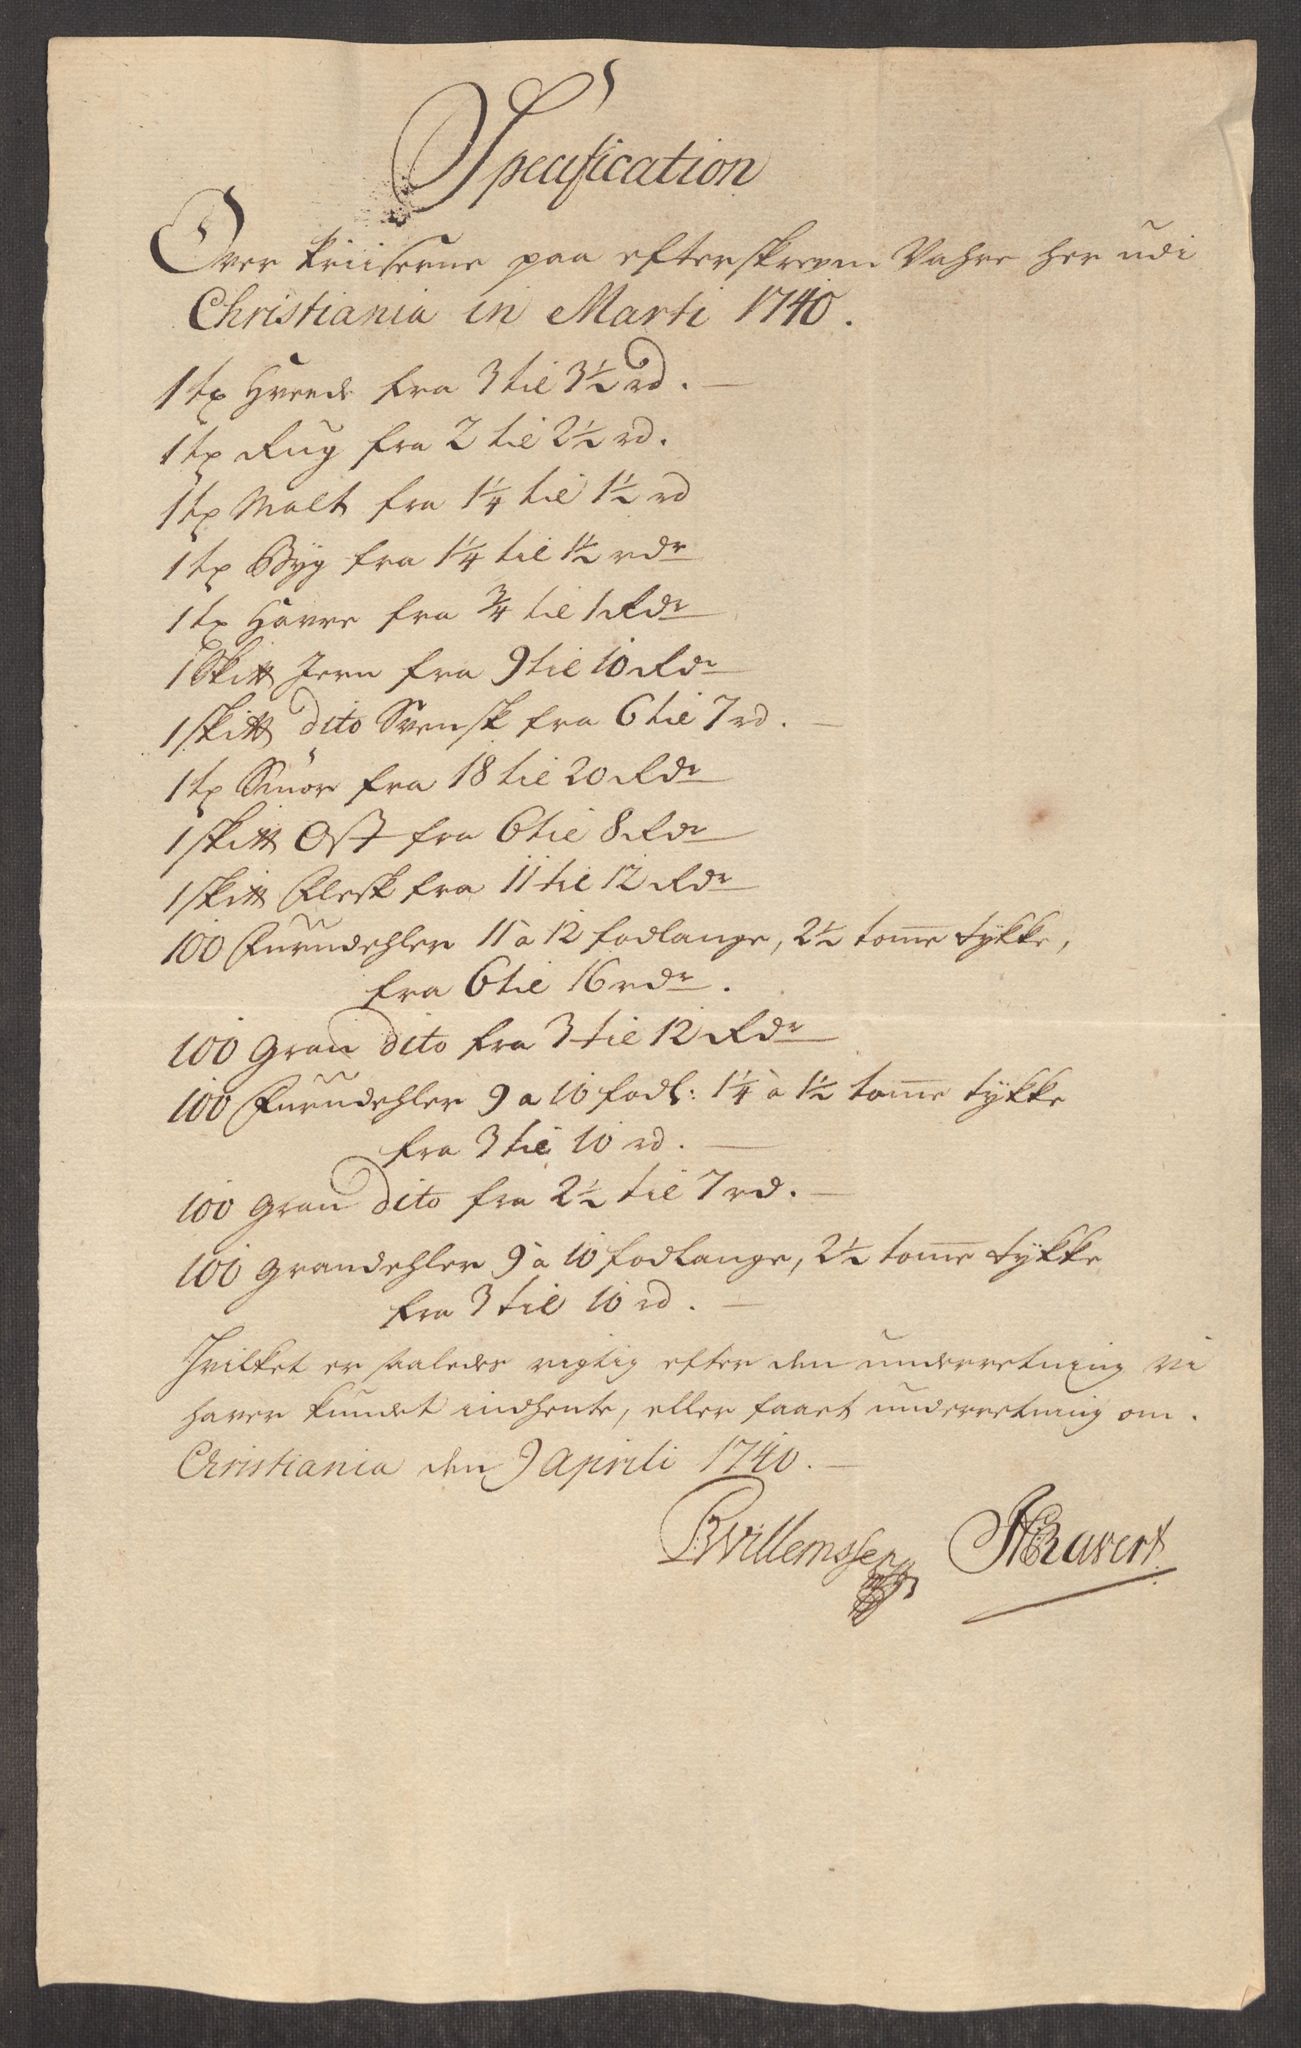 Specification
Over Priiserne paa efterskrevne Vahre her udi
Christiania in Marti 1740.
1 tr Hvede fra 3 til 3½ rd.
1 tr Rug fra 2 til 2½ rd.
1 tr Malt fra 1¼ til 1½ rd
1 tr Byg fra 1¼ til 1½ rdr
1 tr Havre fra ¾ til 1 Rdr
1 Sk℔ Jern fra 9 til 10 Rdr
1 sk℔ dito Svensk fra 6 til 7 rd.
1 tr Smør fra 18 til 20 Rdr
1 sk℔ Ost fra 6 til 8 Rdr
1 sk℔ Flesk fra 11 til 12 Rdr
100 Furudehler 11 a 12 fodlange, 2½ tome tykke,
fra 6 til 16 rdr.
100 Gran dito fra 3 til 12 Rdr
100 Furudehler 9 a 10 fodl: 1¼ a 1½ tome tykke
fra 3 til 10 rd.
100 Gran dito fra 2½ til 7 rd.
100 Grandehler 9 a 10 fodlange, 2½ tome tykke
fra 3 til 10 rd.
Hvilket er saaledes rigtig efter den underretning vi
haver kundet indhente, eller faaet underretning om.
Christiania den 9 Aprili 1740.
BWillemssen